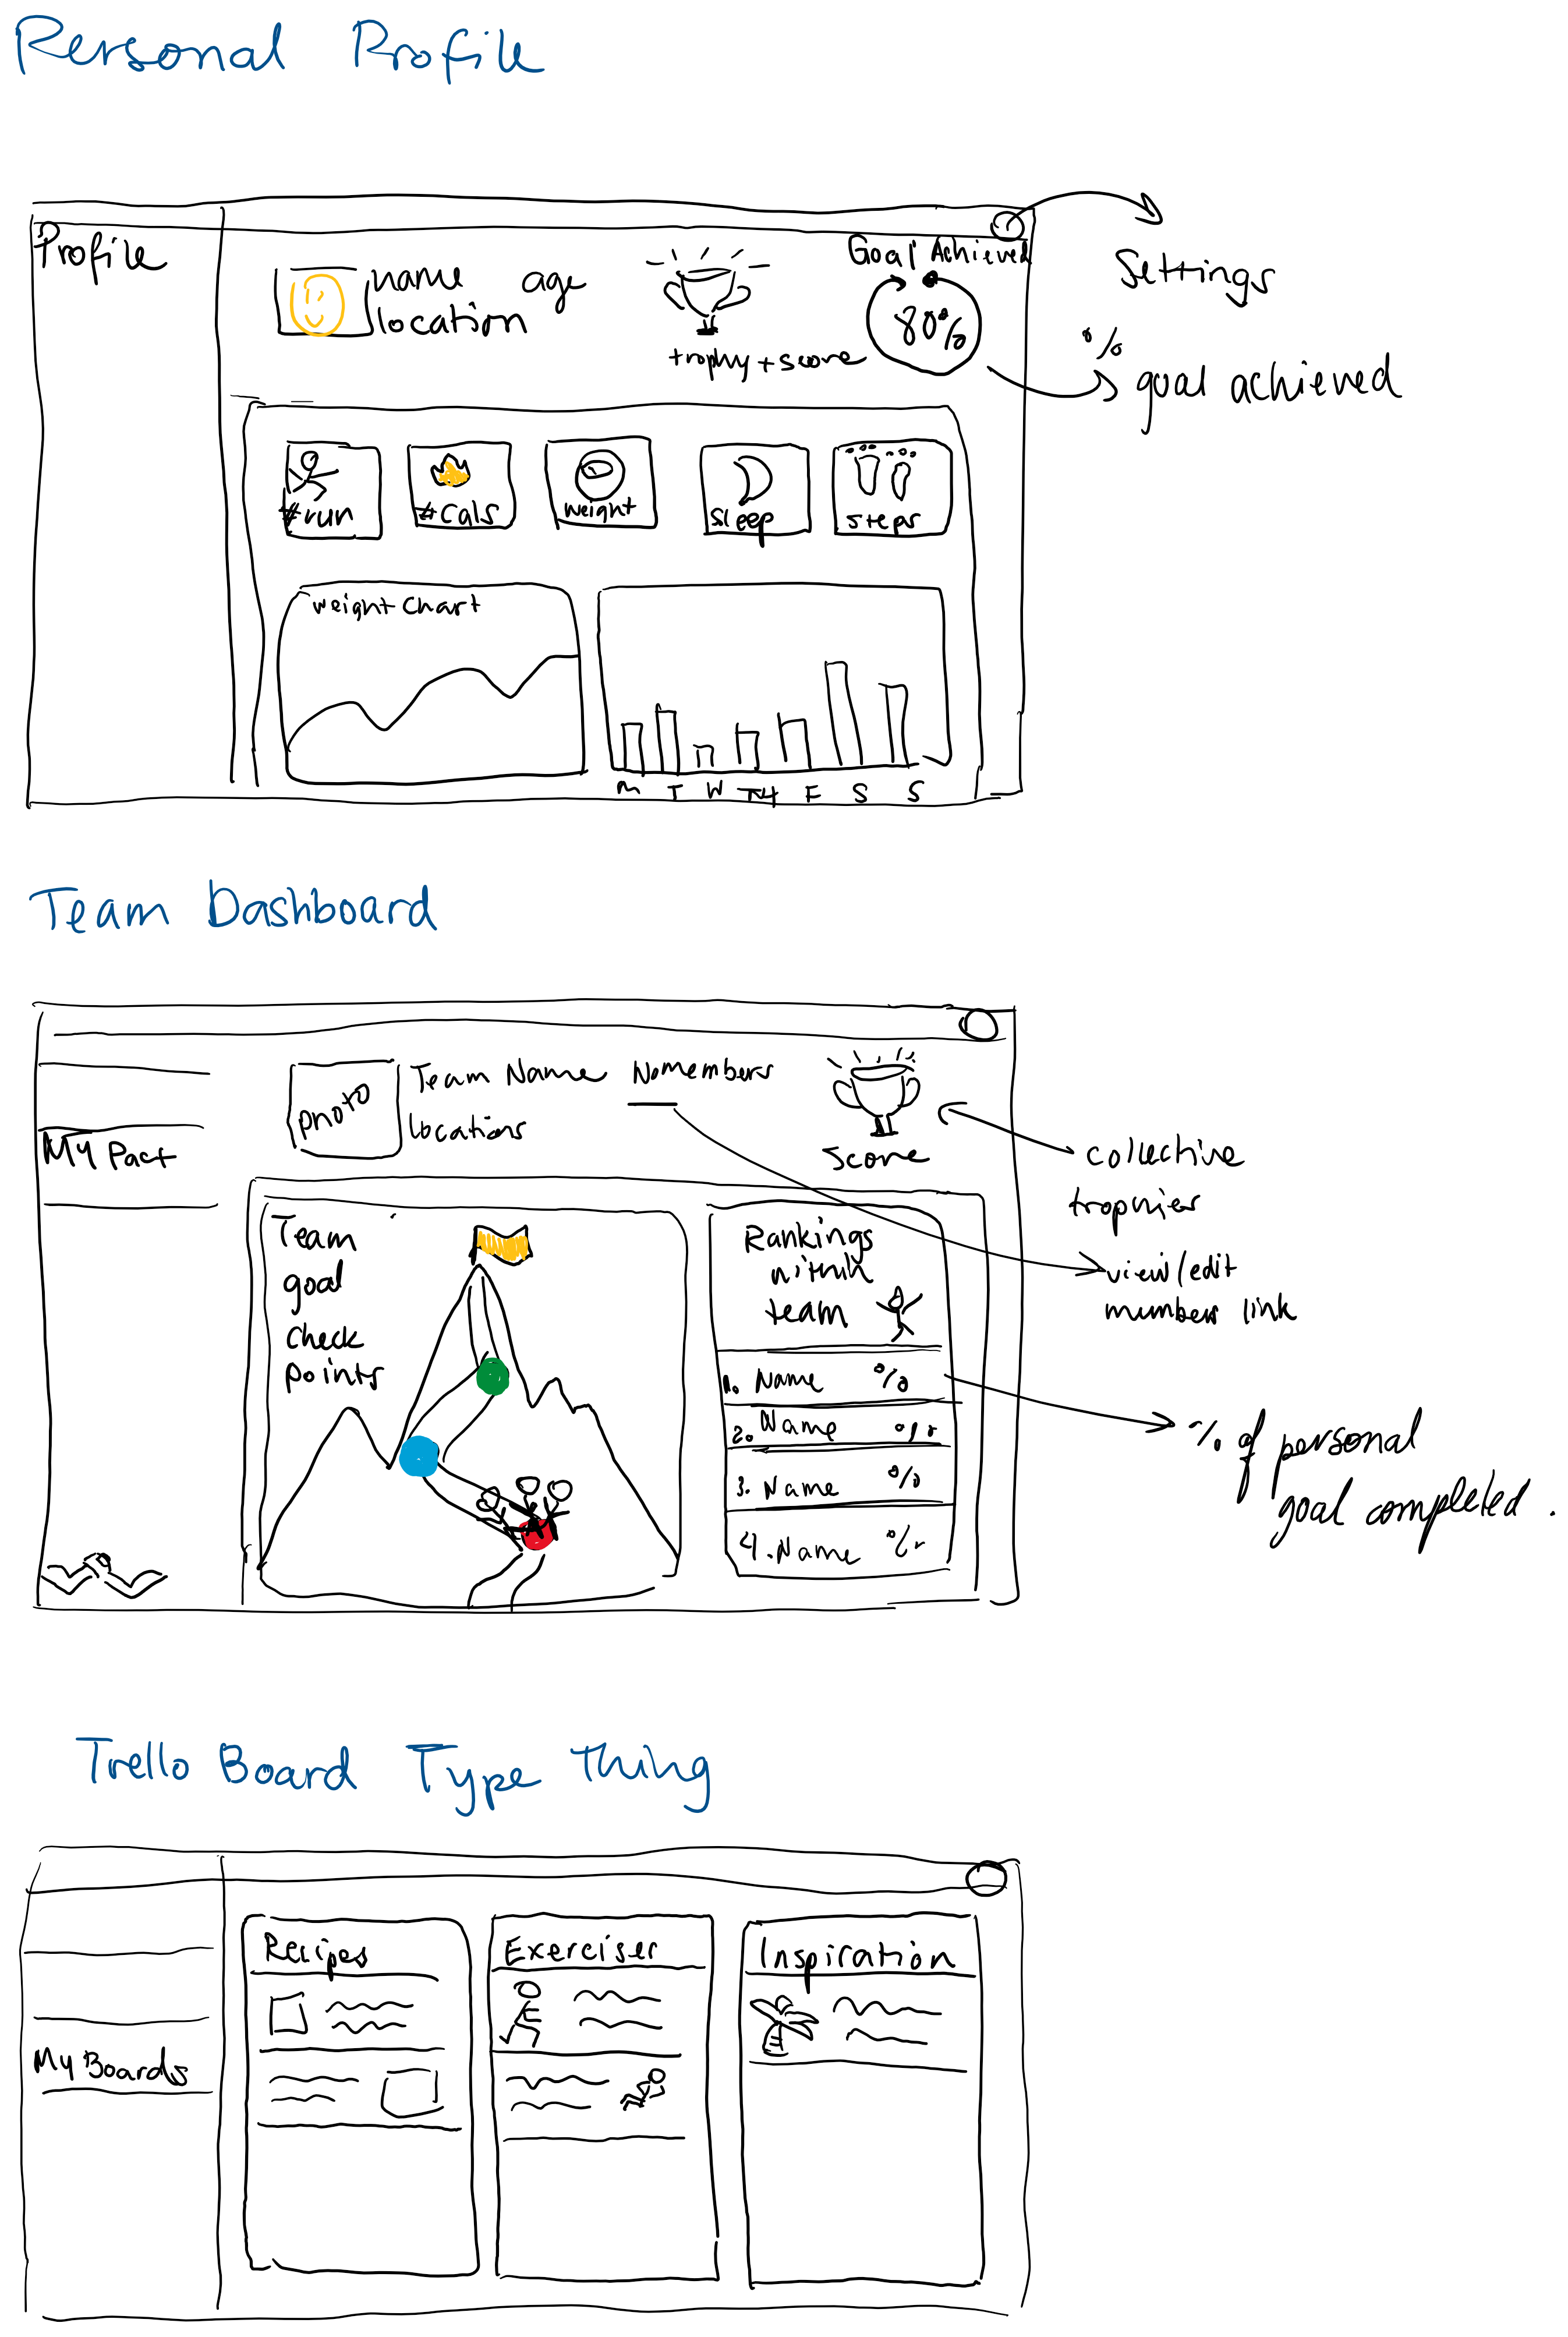 Personal Profile
Profile
name age
location
trophy + score
Goal Achieved
80%
Settings
%
goal achieved
#run
#cals
weight
sleep
steps
weight chart
M T W TH F S S
Team Dashboard
My Pact
photo
Team Name No members
locations
Score
collective
trophies
view/edit
members link
Team
goal
check
points
Rankings
within
team
1. Name %
2. Name %
3. Name %
4. Name %
% of personal
goal completed.
Trello Board Type Thing
My Boards
Recipes
Exerciser
Inspiration